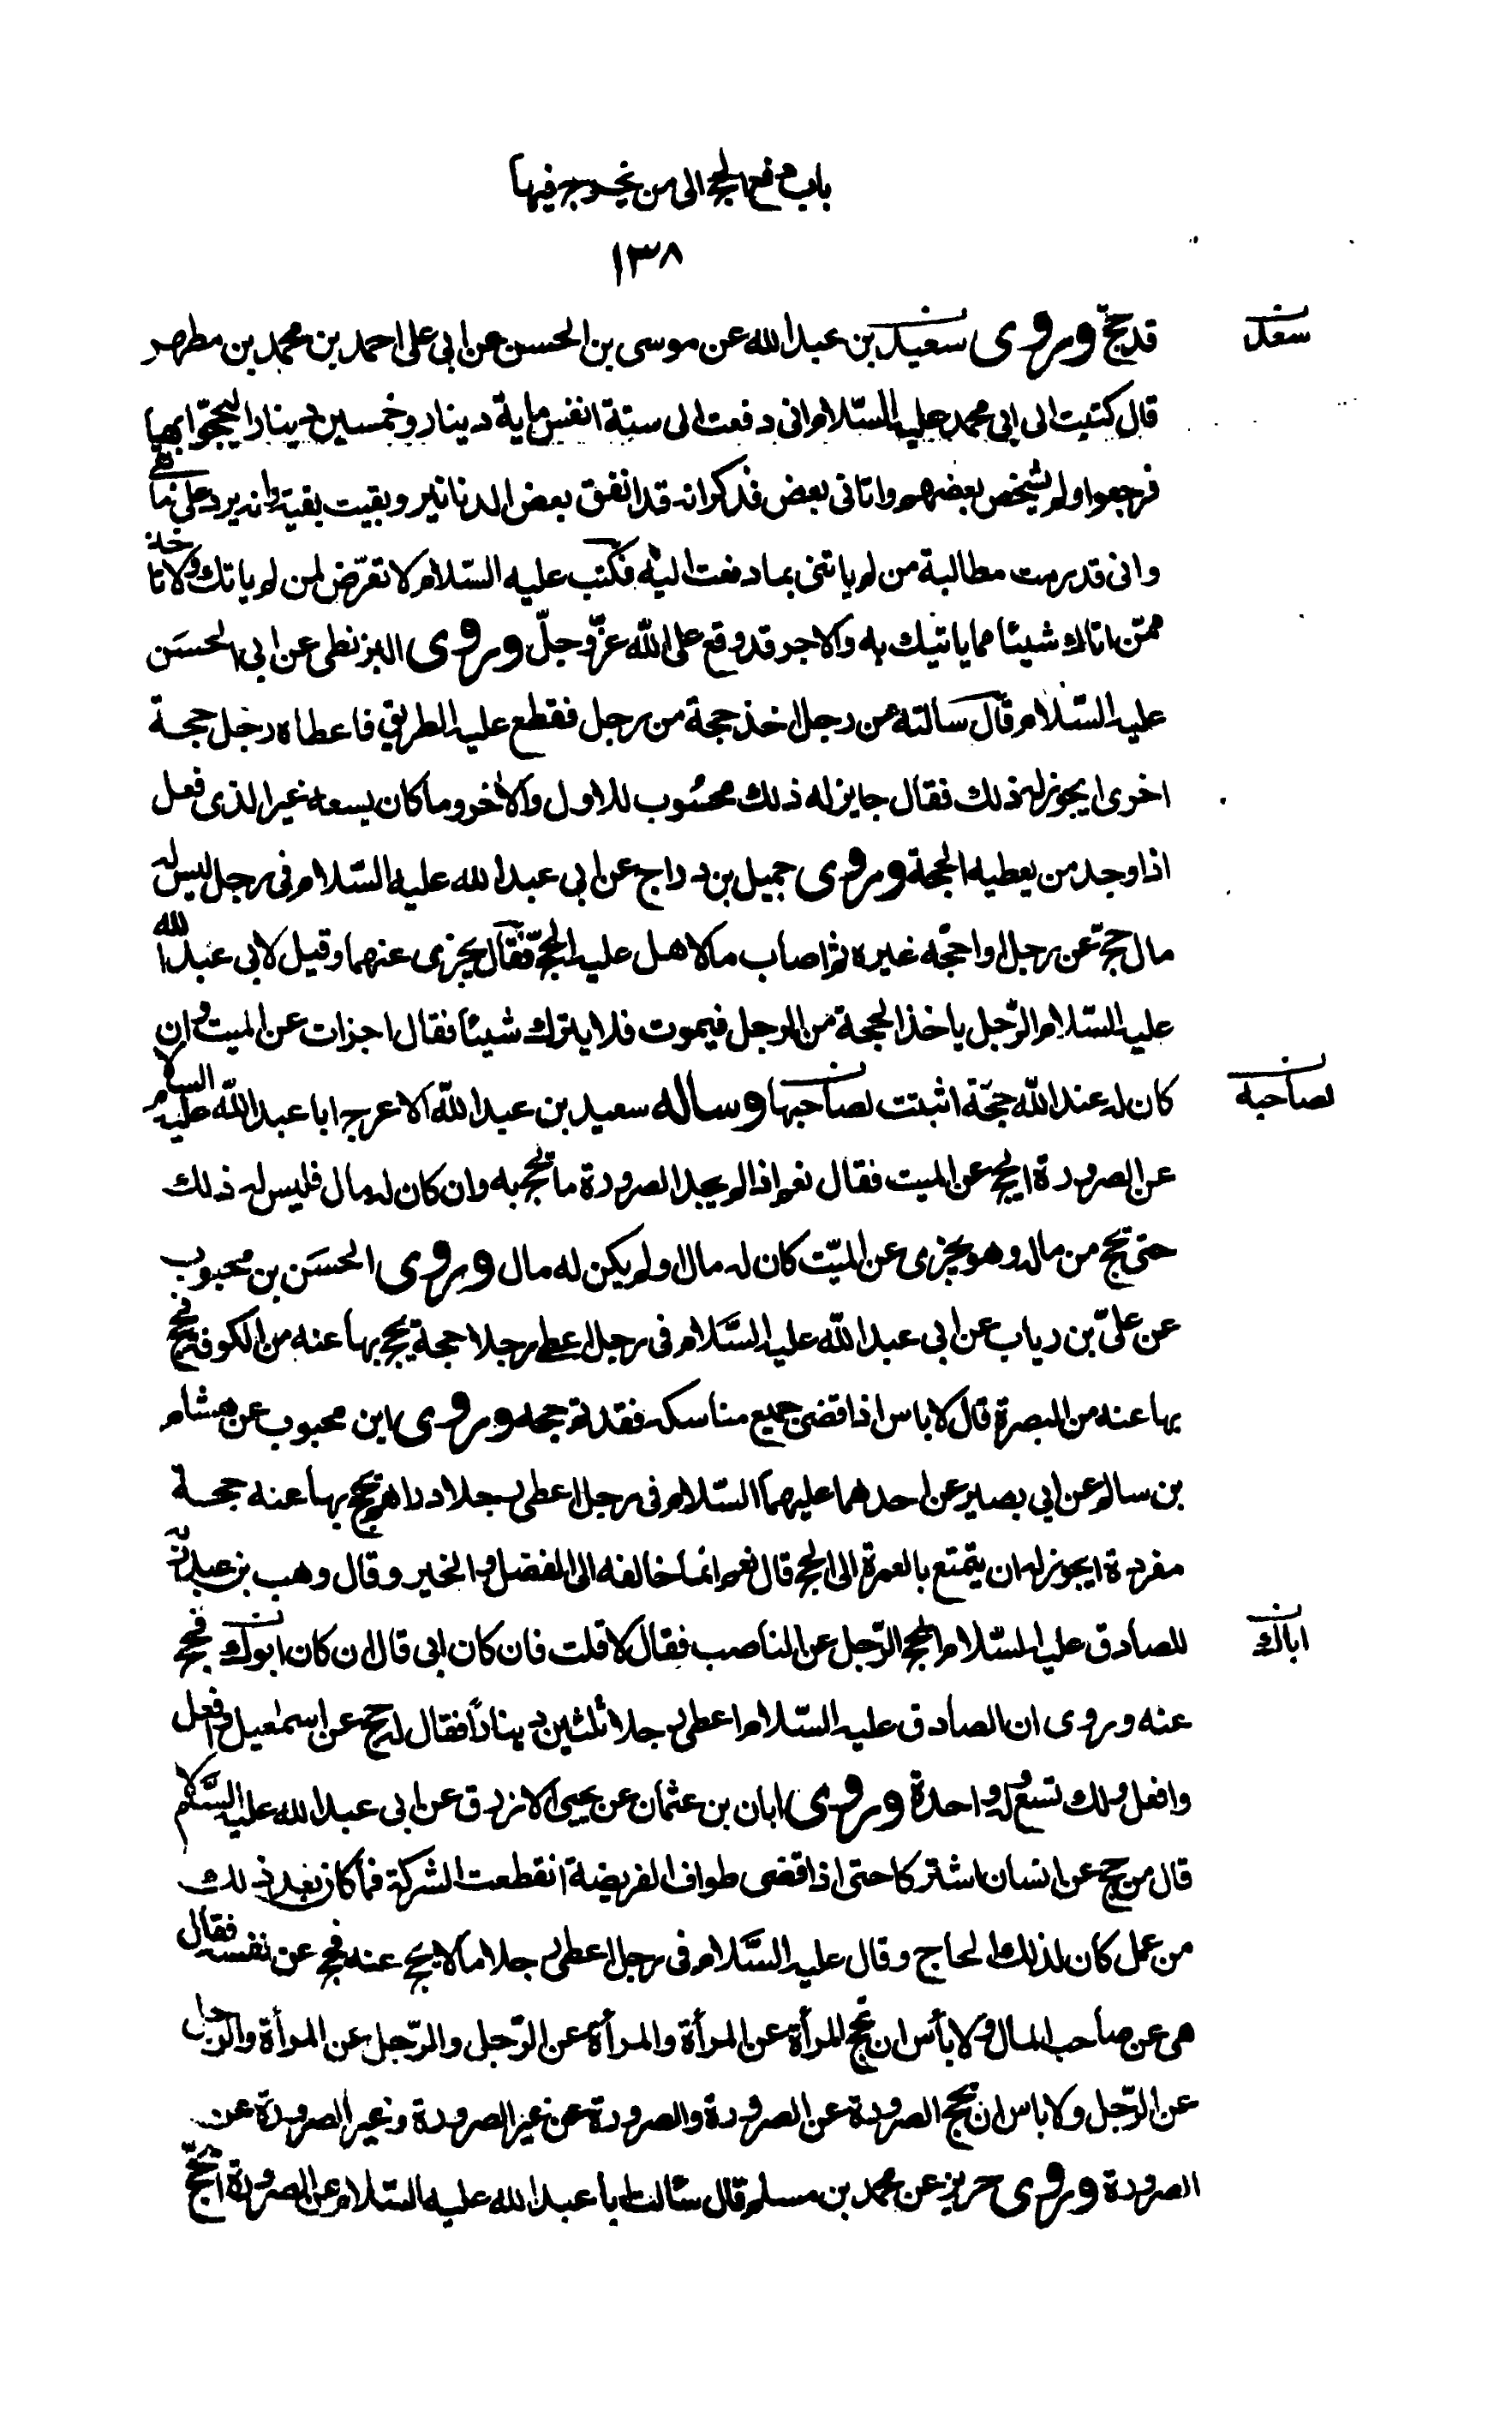 باب دفع الحج الى من يخرج فيها
١٣٨
قد حجّ وروى سعيد بن عبد الله عن موسى بن الحسن عن ابى على احمد بن محمد بن مطهر
سعد
قال كتبت الى ابى محمد عليه السّلام انى دفعت الى ستة انفس ماية دينار وخمسين دينارا ليحجّوا بها
فرجعوا ولم يشخص بعضهم واتانى بعض فذكر انه قد انفق بعض الدنانير وبقيت بقية وانه يرد على ما بقى
وانى قد رمت مطالبة من لم ياتنى بما دفعت اليه فكتب عليه السّلام لا تعرّض لمن لم ياتك ولا تاخذ
ممّن اتاك شيئا مما ياتيك به والاجر قد وقع على الله عزّ وجلّ وروى البزنطى عن ابى الحسَن
عليه السّلام قال سالته عن رجل اخذ حجة من رجل فقطع عليه الطريق فاعطاه رجل حجة
اخرى ايجوز له ذلك فقال جايز له ذلك محسُوب للاول والاخر وما كان يسعه غير الذى فعل
اذا وجد من يعطيه الحجة وروى جميل بن دراج عن ابى عبد الله عليه السّلام فى رجل ليس له
مال حجّ عن رجل او احجّه غيره ثم اصاب مالا هل عليه الحجّ فقال يجزى عنهما وقيل لابى عبد الله
عليه السّلام الرّجل ياخذ الحجة من الرجل فيموت فلا يترك شيئا فقال اجزات عن الميت وان
كان له عند الله حجّة اثبتت لصاحبها وساله سعيد بن عبد الله الاعرج ابا عبد الله عليه السلام
لصاحبه
عن الصرورة ايحج عن الميت فقال نعم اذا لم يجد الصرورة ما يحج به وان كان له مال فليس له ذلك
حتى يحج من ماله وهو يجزى عن الميّت كان له مال او لم يكن له مال وروى الحسَن بن محبوب
عن علىّ بن رياب عن ابى عبد الله عليه السَّلام فى رجل اعطى رجلا حجة يحج بها عنه من الكوفة فحج
بها عنه من البصرة قال لا باس اذا قضى جميع مناسكه فقد تم حجه وروى ابن محبوب عن هشام
بن سالم عن ابى بصير عن احدهما عليهما السّلام فى رجل اعطى رجلا دراهم يحج بها عنه حجة
مفردة ايجوز له ان يتمتع بالعمرة الى الحج قال نعم انما خالفه الى الفضل والخير وقال وهب بن عبد ربه
للصادق عليه السّلام ايحج الرّجل عن الناصب فقال لا قلت فان كان ابى قال ان كان ابوك فحج
اباك
عنه وروى ان الصادق عليه السّلام اعطى رجلا ثلثين ديناراً فقال له حج عن اسمعيل وافعل
وافعل ولك تسع وله واحدة وروى ابان بن عثمان عن يحيى الازرق عن ابى عبد الله عليه السَّلام
قال من حج عن انسان اشتركا حتى اذا قضى طواف الفريضة انقطعت الشركة فما كان بعد ذلك
من عمل كان لذلك الحاج وقال عليه السَّلام فى رجل اعطى رجلا مالا يحج عنه فحج عن نفسه فقال
هى عن صاحب المال ولا بأس ان تحج المرأة عن المرأة والمرأة عن الرّجل والرّجل عن المرأة والرجل
عن الرّجل ولا باس ان يحج الصرورة عن الصرورة والصرورة عن غير الصرورة وغير الصرورة عن
الصرورة وروى حريز عن محمد بن مسلم قال سئالت ابا عبد الله عليه السّلام عن الصرورة ايحجّ